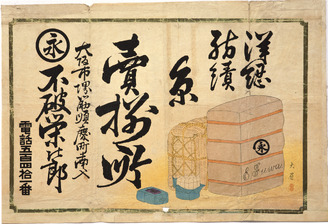 洋継
紡績
糸
賣捌所
大阪市堺筋順慶町南入
永
不破栄次郎
電話五百四拾二番
永